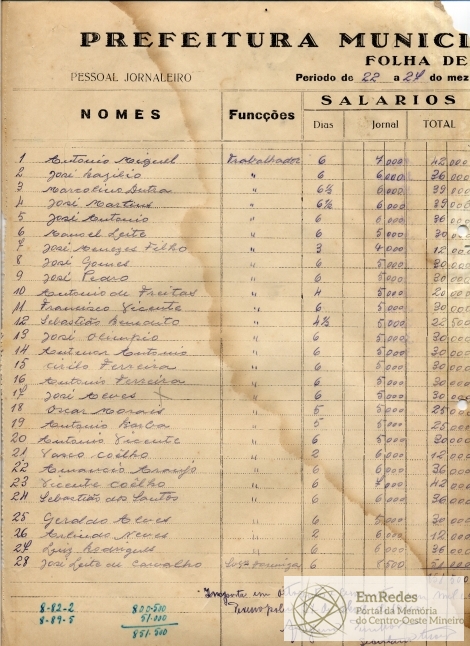 PREFEITURA MUNICI
FOLHA DE
PESSOAL JORNALEIRO Periodo de 22 a 27 do mez
NOMES Funcções SALARIOS
Dias Jornal TOTAL
1 Antonio Miguel Trabalhador 6 7,000 42,000
2 José 6 6,000 36,000
3 Marcolino Dutra " 6½ 6,000 39,000
4 José Martins " 6½ 6,000 39,000
5 José Antonio " 6 6,000 36,000
6 Manoel Leite " 6 5,000 30,000
7 José Menezes Filho " 3 4,000 12,000
8 José Gomes " 6 5,000 30,000
9 José Pedro " 6 5,000 30,000
10 Antonio de Freitas " 4 5,000 20,000
11 Francisco Vicente " 6 5,000 30,000
12 Sebastião Benedicto " 4½ 5,000 22,500
13 José Olimpio " 6 5,000 30,000
14 Antenor Antonio " 6 5,000 30,000
15 Cirilo Ferreira " 6 5,000 30,000
16 Antonio Ferreira " 6 5,000 30,000
17 José Neves " 6 5,000 30,000
18 Oscar Morais " 5 5,000 25,000
19 Antonio Borba " 5 5,000 25,000
20 Antonio Vicente " 6 5,000 30,000
21 Vasco Coêlho " 2 6,000 12,000
22 Amancio Araujo " 6 6,000 36,000
23 Vicente Coêlho " 6 7,000 42,000
24 Sebastião dos Santos " 6 6,000 36,000
25 Geraldo Alves " 6 5,000 30,000
26 Arlindo Neves " 2 6,000 12,000
27 Luiz Rodrigues " 6 6,000 36,000
28 José Leite de Carvalho 6 8,500 51,000
Importa em
8-82-2 800.500
8-89-5 51.000
851.500
EmRedes
Portal da Memória
do Centro-Oeste Mineiro